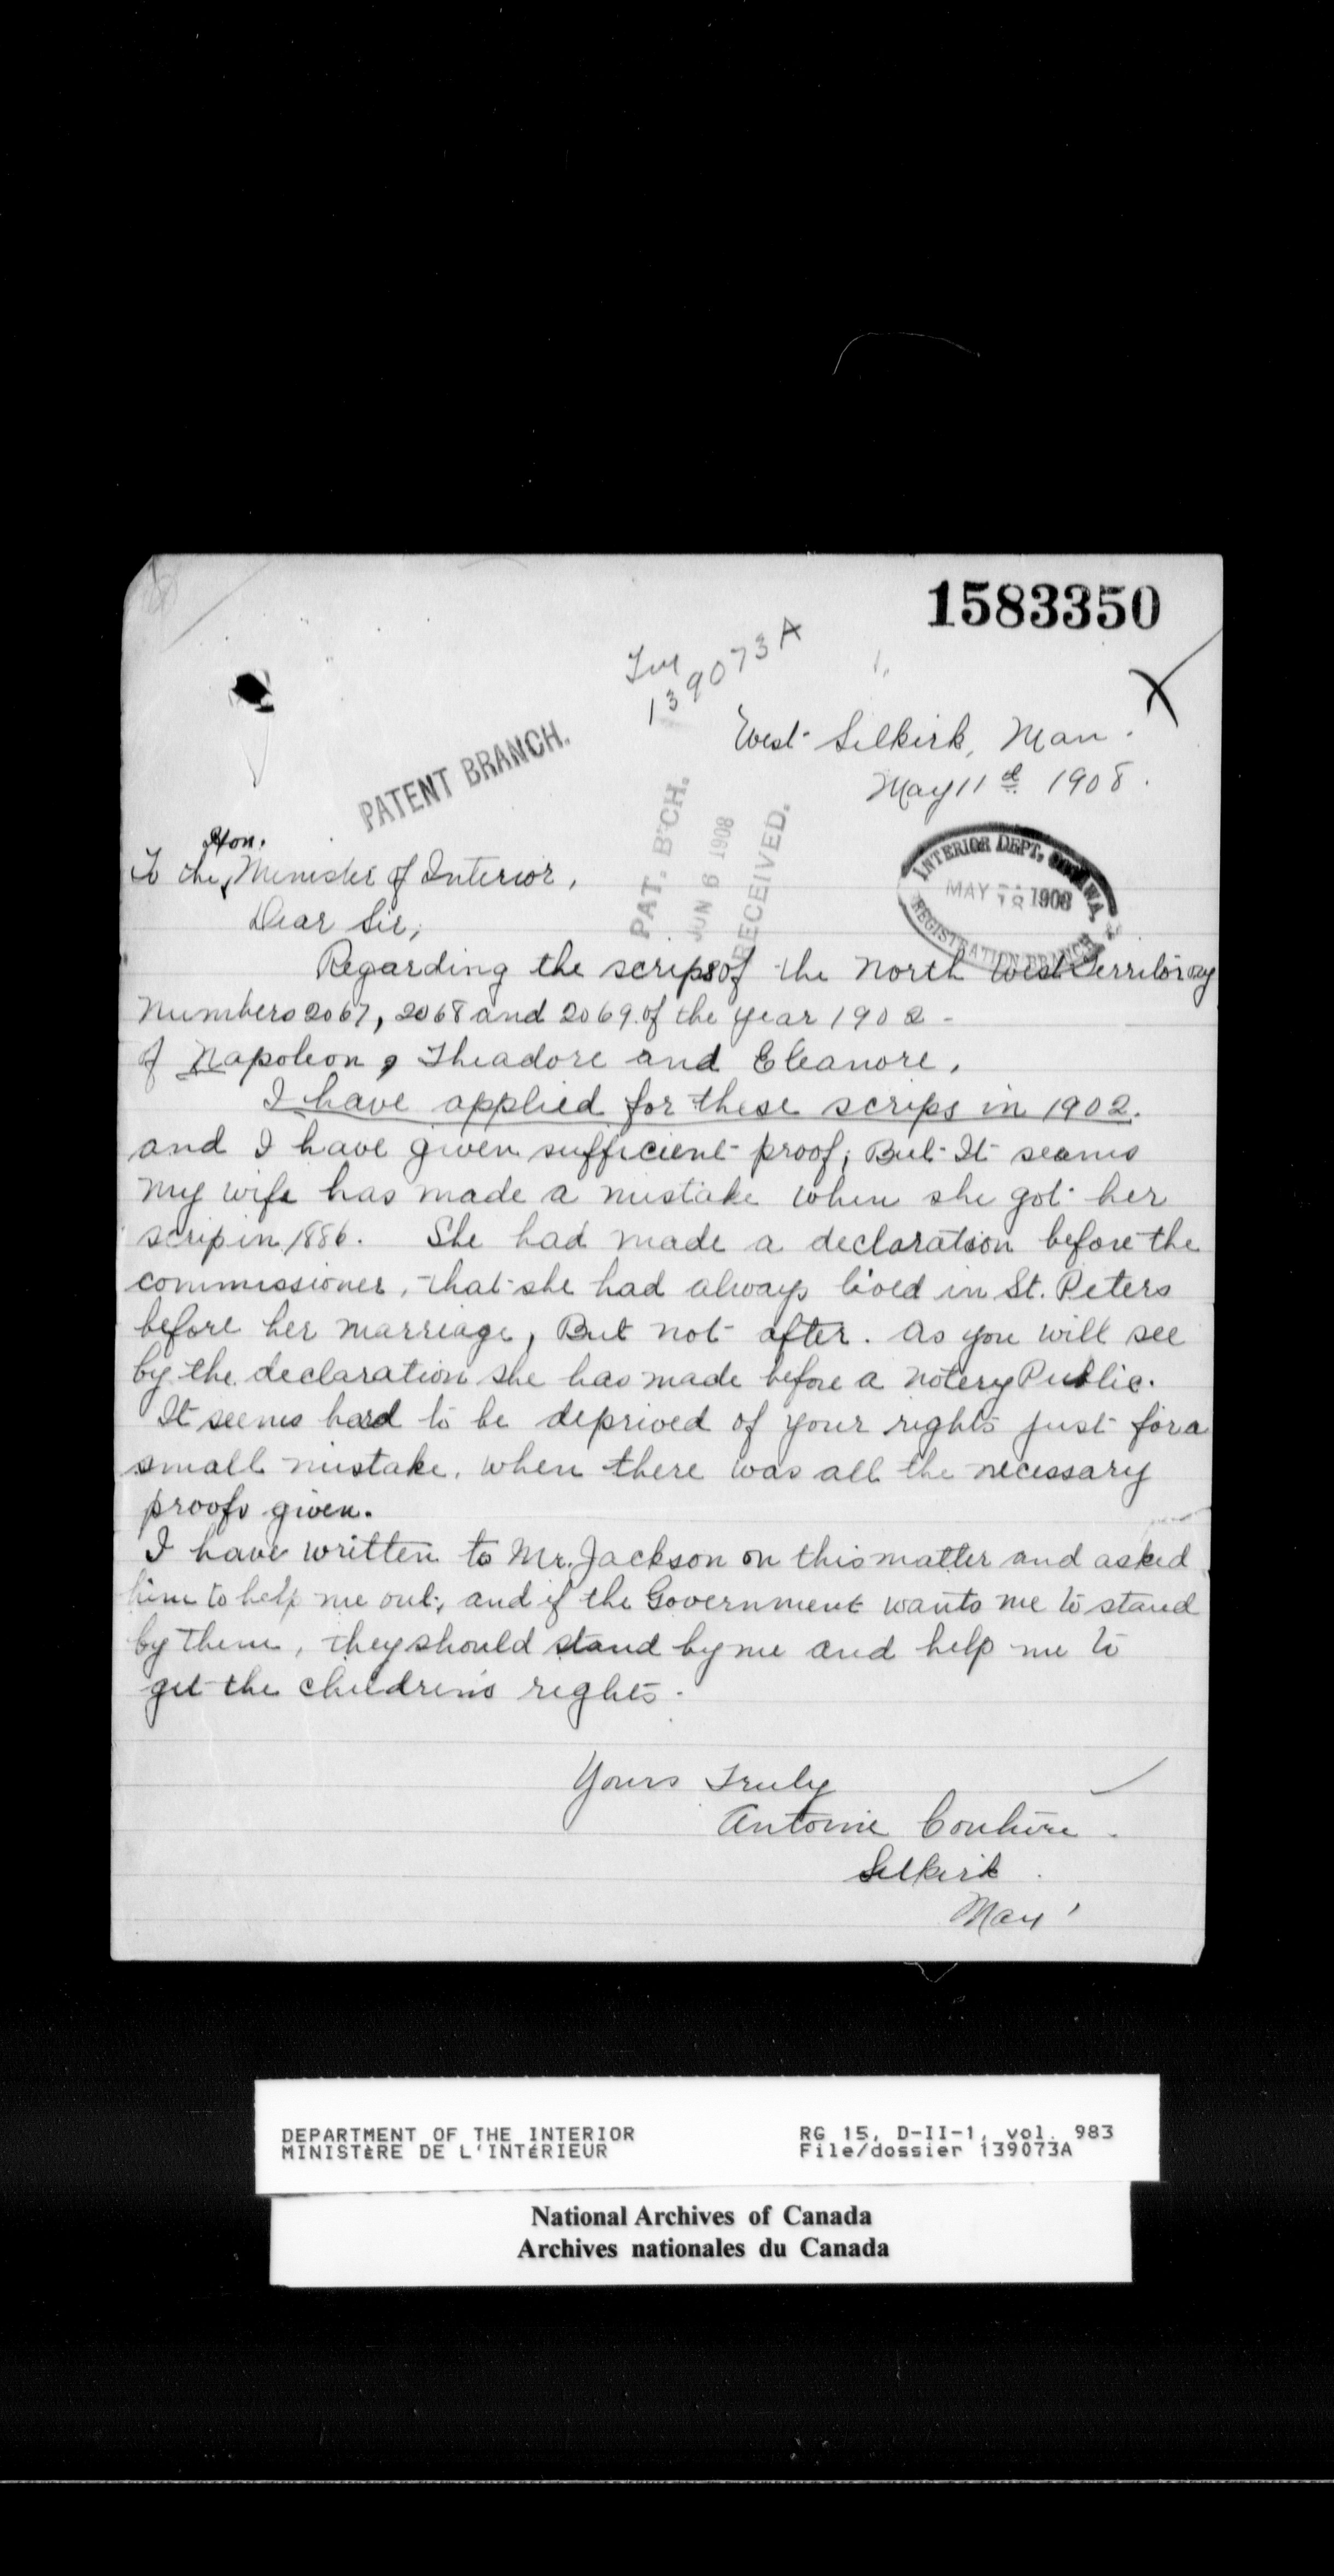 1583350
139073A
West Selkirk, Man.
May 11d. 1908.
PATENT BRANCH.
PAT. B'CH.
JUN 6 1908
RECEIVED.
INTERIOR DEPT. OTTAWA
MAY 1908
REGISTRATION BRANCH
Hon.
To the Minister of Interior,
Dear Sir,
Regarding the scrips of the North West Territory
Numbers 2067, 2068 and 2069 of the year 1902 -
of Napoleon, Theadore and Eleanore.
I have applied for these scrips in 1902.
and I have given sufficient proof; But It seems
my wife has made a mistake when she got her
scrip in 1886. She had made a declaration before the
commissioner, that she had always lived in St. Peters
before her marriage, But not after. As you will see
by the declaration she has made before a notery Public.
It seems hard to be deprived of your rights just for a
small mistake. when there was all the necessary
proofs given.
I have written to Mr. Jackson on this matter and asked
him to help me out, and if the Government wants me to stand
by them, they should stand by me and help me to
get the children's rights.
Yours Truly
Antoine Couture.
Selkirk.
Man
DEPARTMENT OF THE INTERIOR
MINISTÈRE DE L'INTÉRIEUR
RG 15, D-II-1, vol. 983
File/dossier 139073A
National Archives of Canada
Archives nationales du Canada